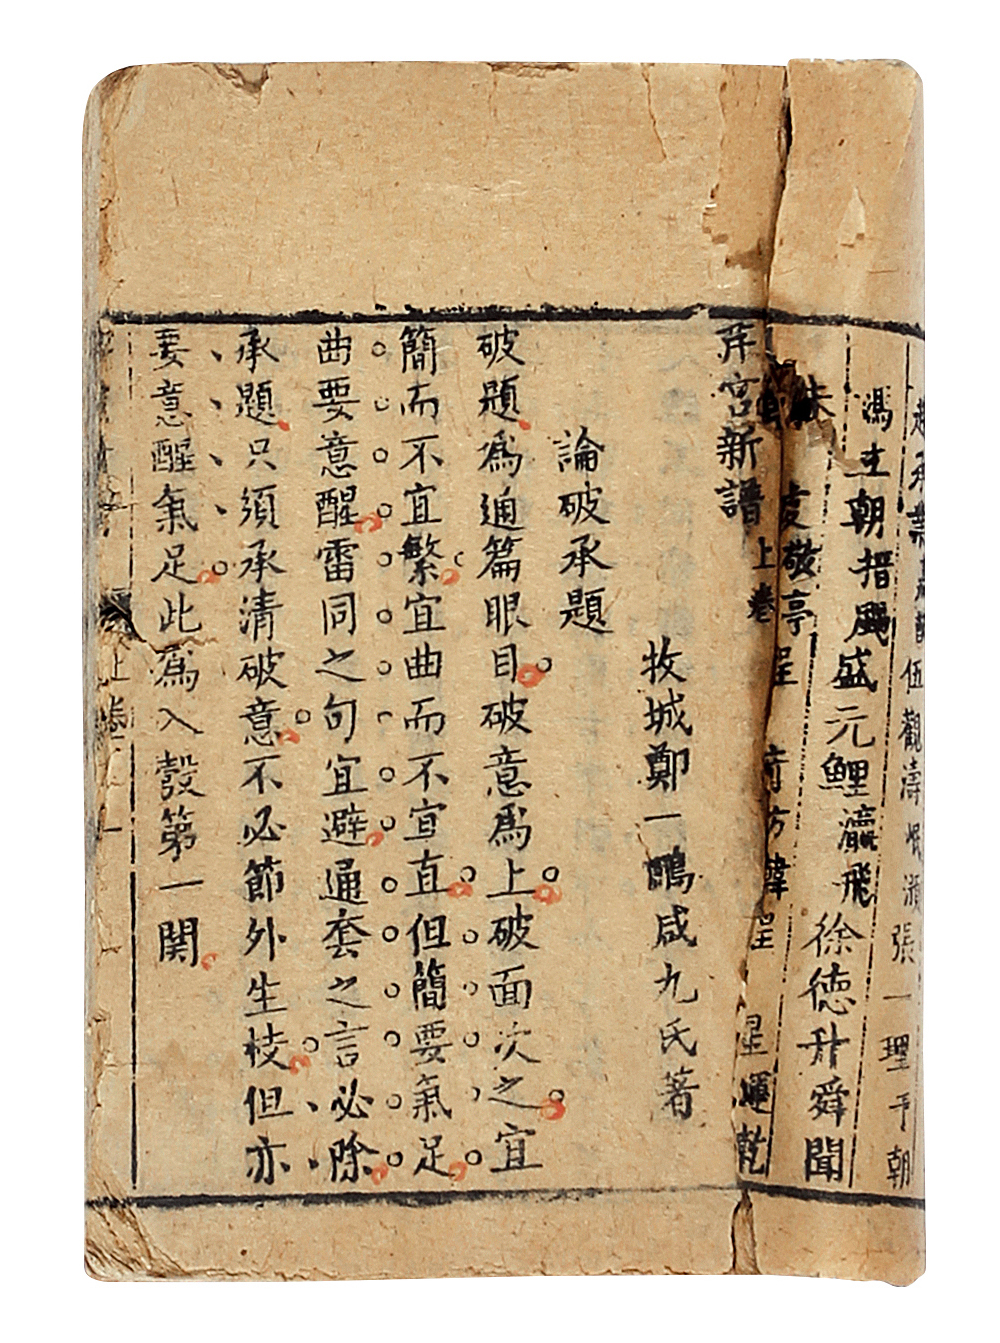 趙承業 伍觀濤 張一理平朝
馮士朝搢颺盛元鯉瀛飛徐德升舜聞
敬亭
星運乾
芹宮新譜 上卷
牧城鄭一鵬咸九氏著
論破承題
破題爲通篇眼目破意爲上破面次之宜
簡而不宜繁宜曲而不宜直但簡要氣足
曲要意醒雷同之句宜避通套之言必除
承題只須承清破意不必節外生枝但亦
要意醒氣足此爲入彀第一関
上卷 一